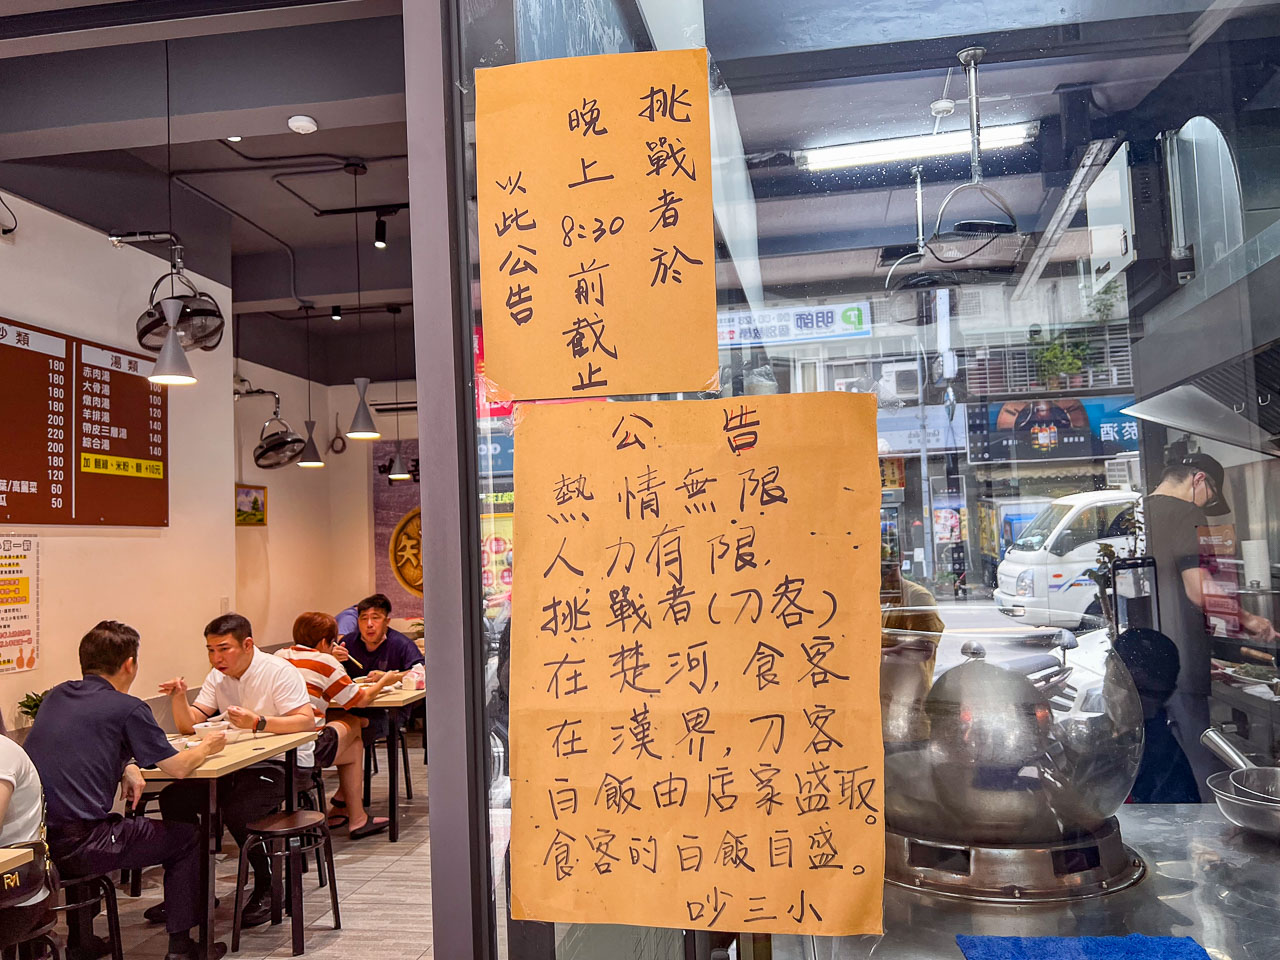 挑戰者於
晚上
8:30
前截止
以此公告
公告
熱情無限
人力有限,
挑戰者(刀客)
在楚河,食客
在漢界,刀客
白飯由店家盛取。
食客的白飯自盛。
吵三小
炒類
180
180
180
180
200
220
200
180
180
60
50
湯類
赤肉湯 100
大骨湯 100
燉肉湯 120
羊排湯 120
帶皮三層湯 140
綜合湯 140
加 麵線、米粉、麵 +10元
明師